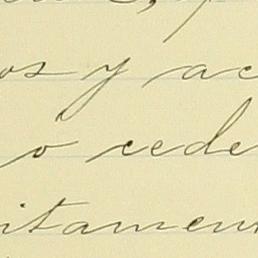 os y ac
o cede
itamen